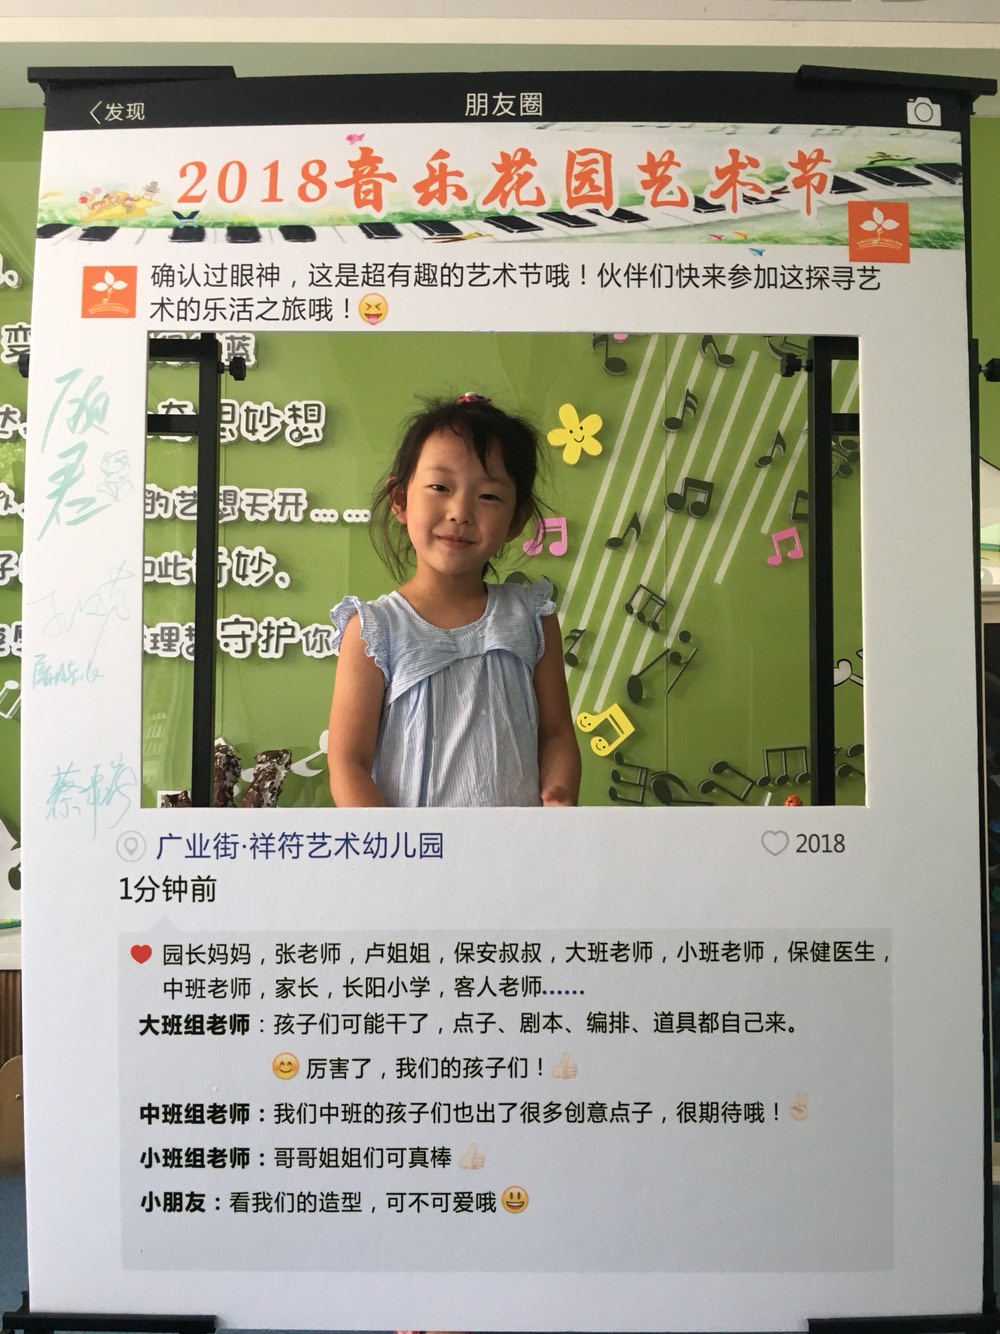 发现
朋友圈
2018音乐花园艺术节
确认过眼神，这是超有趣的艺术节哦！伙伴们快来参加这探寻艺
术的乐活之旅哦！
蓝
思妙想
的艺 想天开……
如此 妙、
理 守护你
广业街·祥符艺术幼儿园
2018
1分钟前
园长妈妈，张老师，卢姐姐，保安叔叔，大班老师，小班老师，保健医生，
中班老师，家长，长阳小学，客人老师……
大班组老师：孩子们可能干了，点子、剧本、编排、道具都自己来。
厉害了，我们的孩子们！
中班组老师：我们中班的孩子们也出了很多创意点子，很期待哦！
小班组老师：哥哥姐姐们可真棒
小朋友：看我们的造型，可不可爱哦